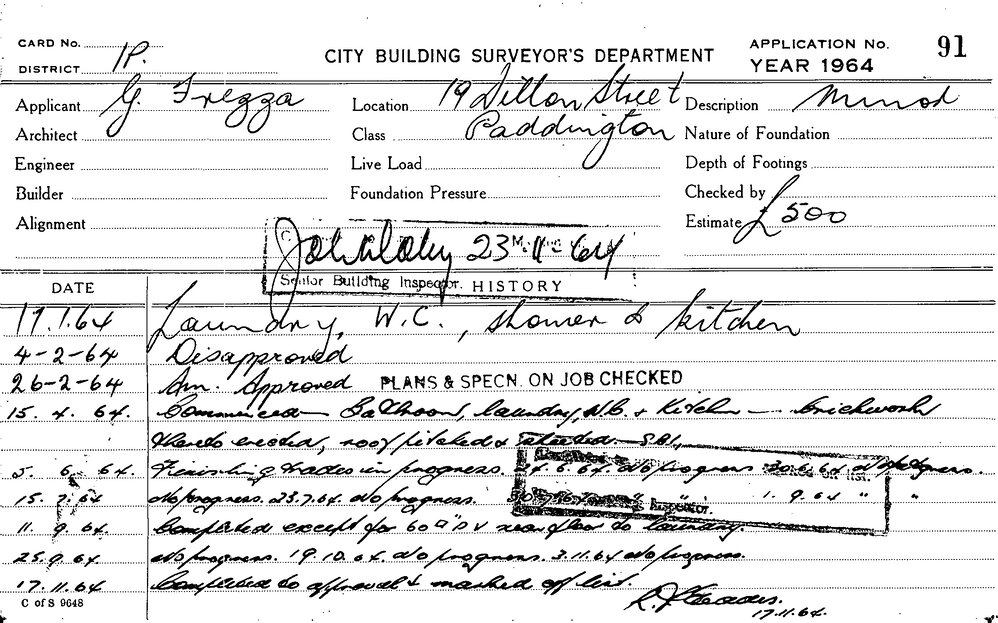 CARD No.
DISTRICT 1P.
CITY BUILDING SURVEYOR'S DEPARTMENT
APPLICATION No. 91
YEAR 1964
Applicant G. Fregza Location 19 Dillon Street Description Minor
Architect Class Paddington Nature of Foundation
Engineer Live Load Depth of Footings
Builder Foundation Pressure Checked by
Alignment Estimate £500
23 11 64
Senior Building Inspector. HISTORY
DATE
17.1.64 Laundry, W.C., shower & kitchen
4-2-64 Disapproved
26-2-64 Am. Approved PLANS & SPECN. ON JOB CHECKED
15. 4. 64. Commenced Bathroom, laundry, W.C. + Kitchen - brickwork
thereto erected, roof pitched &
5. 6. 64. Finishing trades in progress. 24.6.64. No progress 30.6.64 No progress.
15. 7. 64 No progress. 23.7.64. No progress. 1. 9. 64 " "
11. 9. 64. Completed except for rear to laundry.
25.9.64. No progress. 19.10.64. No progress. 3.11.64 No progress.
17.11.64. Completed to approval & marked off list.
17.11.64.
C of S 9648